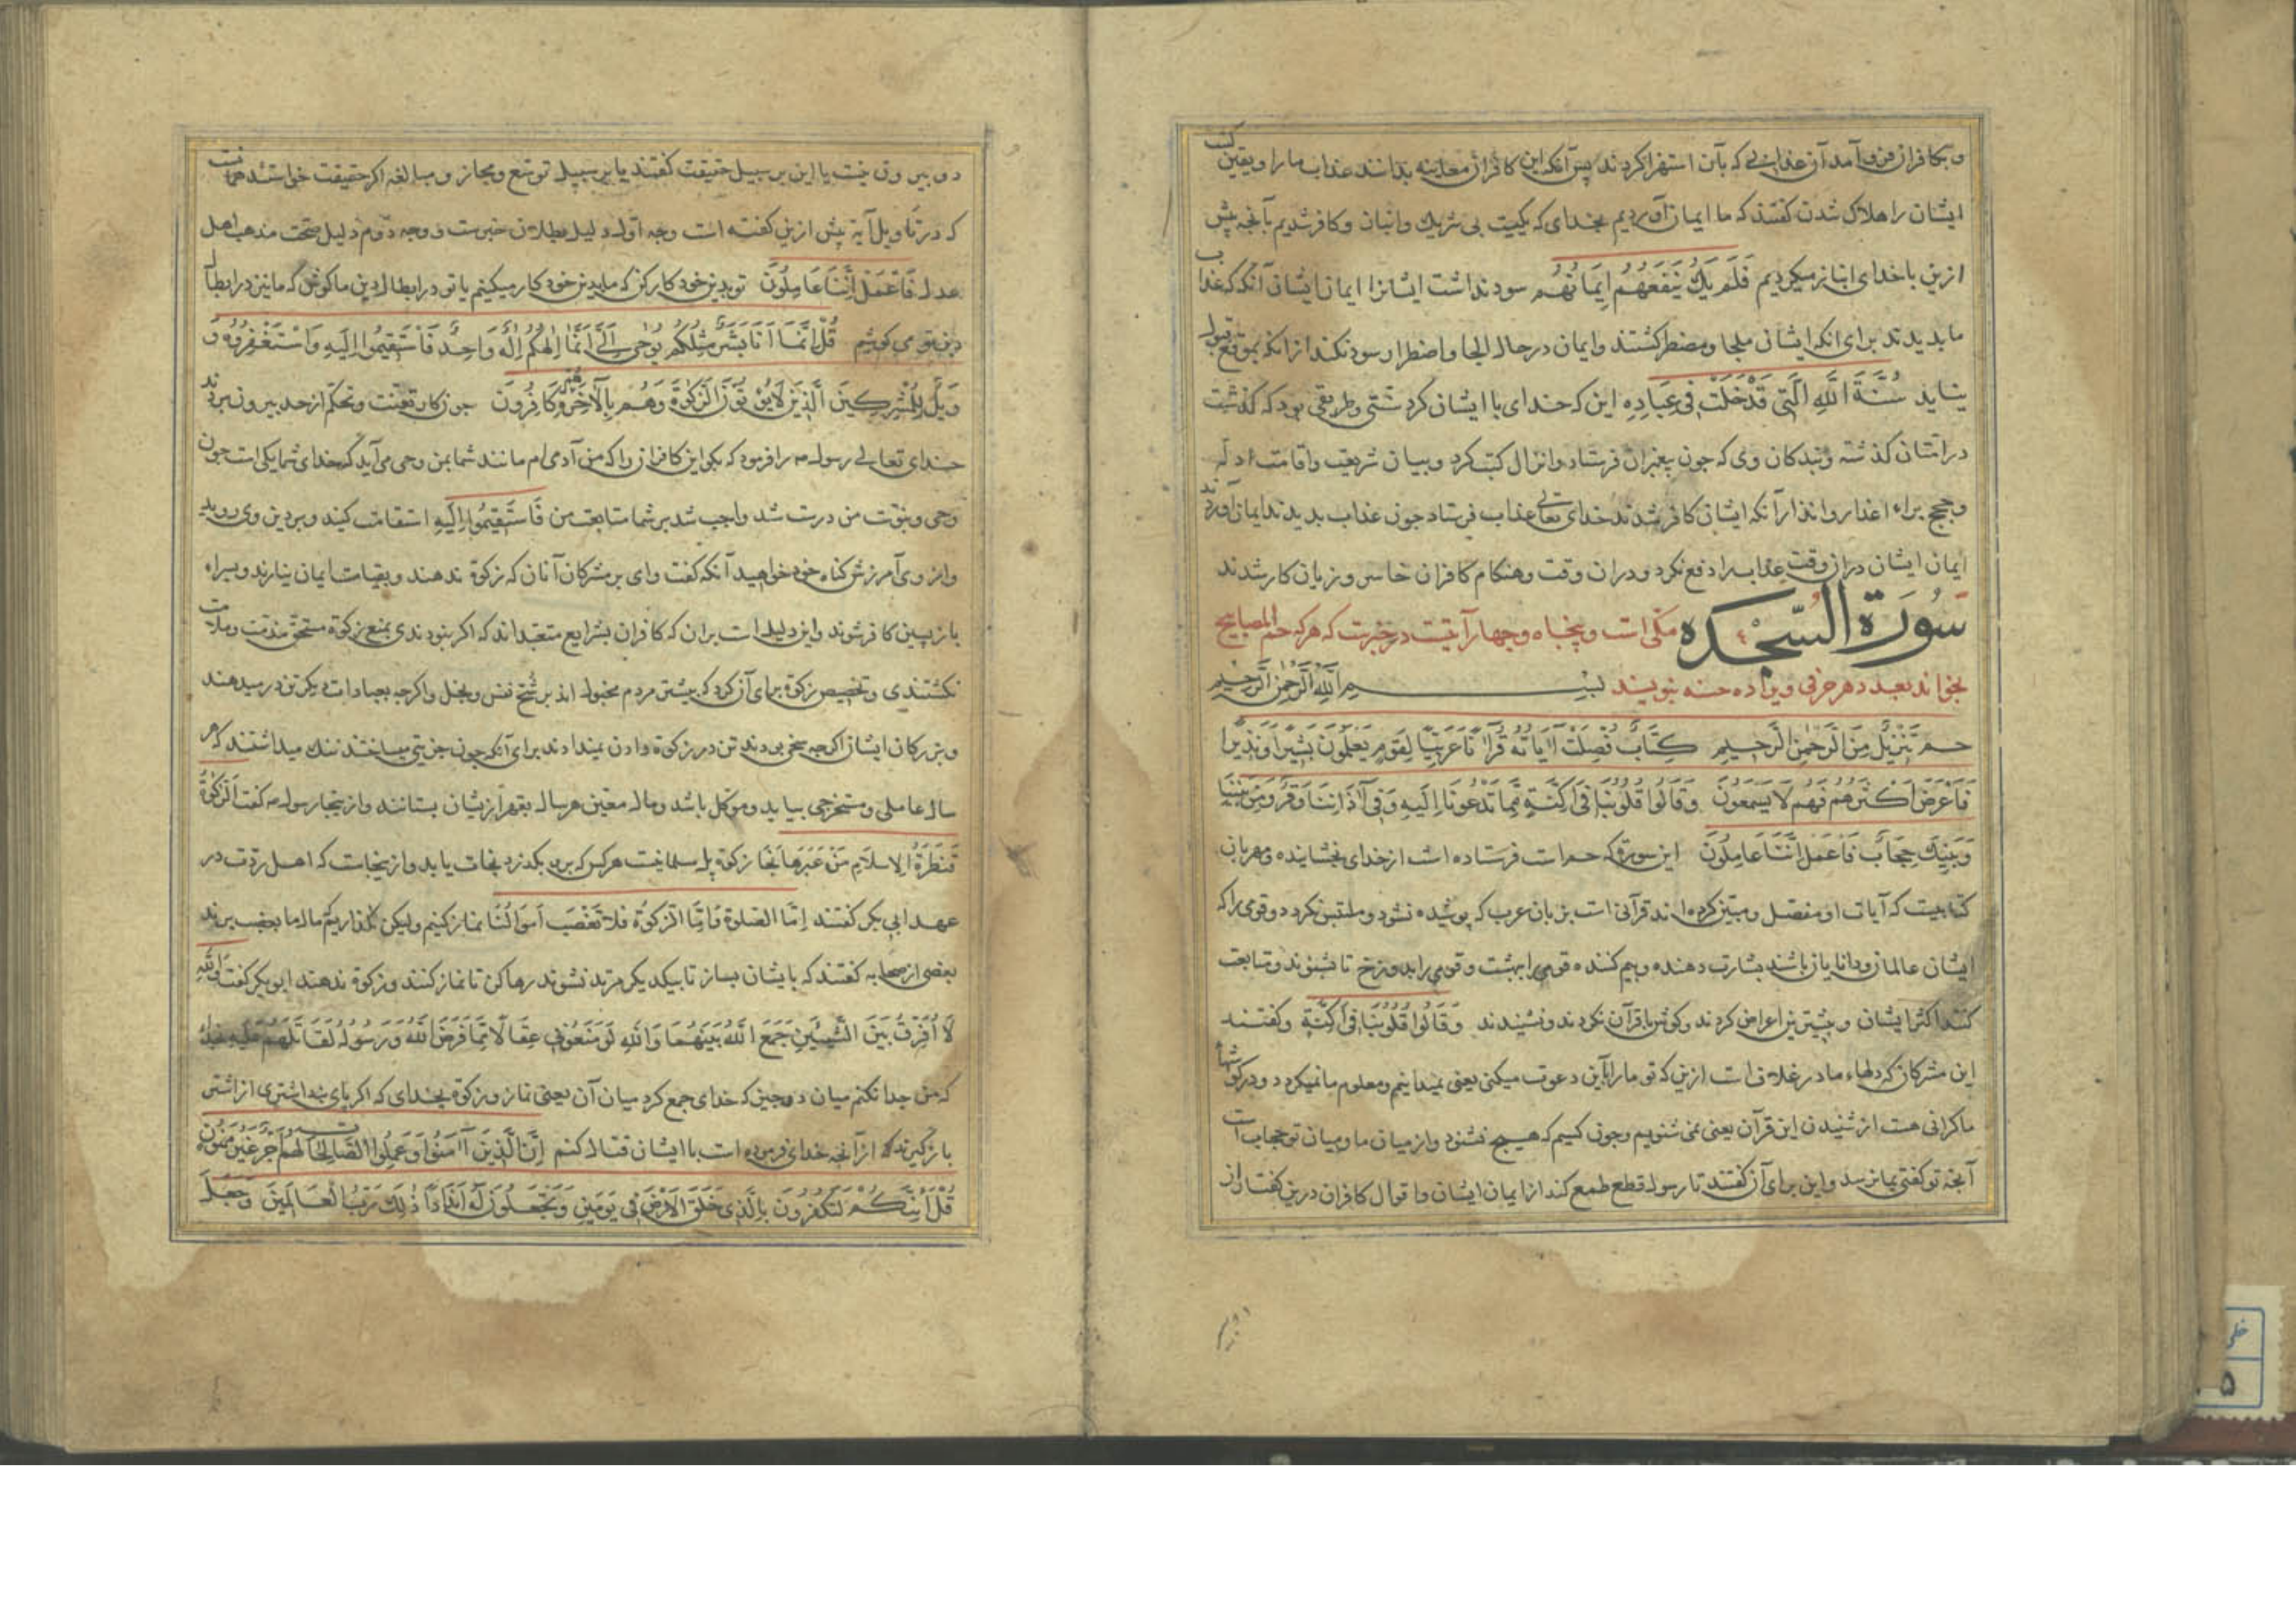 و بکافران فرو آمد آن عذابی که بآن استهزا کردند پس آنکه این کافران معاینه بدانند عذاب ما را و یقین کشت
ایشان را هلاک شدن کفتند که ما ایمان آوردیم بخدای که یکیست بی شریک وانبان وکافر شدیم بآنچه پیش
ازین با خدای انباز میکردیم فَلَمْ یَكُ یَنْفَعُهُمْ إِیمَانُهُمْ سود نداشت ایشانرا ایمان ایشان آنکه که عذاب
ما بدیدند برای انکه ایشان ملجا و مضطر کشتند وایمان در حال الجا و اضطرار سود نکند از انکه بموقع قبول
نیاید سُنَّةَ اللّهِ الَّتِی قَدْ خَلَتْ فِی عِبَادِهِ این که خدای با ایشان کرد سنتی وطریقی بود که کذشت
در امتان کذشته و بندکان وی که جون پیغمبران فرستاد وانزال کتب کرد و بیان شریعت واقامت ادله
و حجج براء اعذار وانذار آنکه ایشان کافر شدند خدای تعالی عذاب فرستاد جون عذاب بدیدند ایمان آوردند
ایمان ایشان در ان وقت عذاب را دفع نکرد ودران وقت وهنکام کافران خاسر و زیان کار شدند
سُورَة السَّجده مکی است و پنجاه وچهار آیتست در خبرست که هرکه حم المصابیح
بخواند بعدد هر حرفی ویرا ده حسنه بنویسند بسم الله الرحمن الرحیم
حم تَنْزِیلٌ مِنَ الرَّحْمنِ الرَّحِیمِ كِتَابٌ فُصِّلَتْ آیَاتُهُ قُرْآنًا عَرَبِیًّا لِقَوْمٍ یَعْلَمُونَ بَشِیرًا وَنَذِیرًا
فَأَعْرَضَ أَكْثَرُهُمْ فَهُمْ لَا یَسْمَعُونَ وَقَالُوا قُلُوبُنَا فِی أَكِنَّةٍ مِمَّا تَدْعُونَا إِلَیْهِ وَفِی آذَانِنَا وَقْرٌ وَمِنْ بَیْنِنَا
وَبَیْنِكَ حِجَابٌ فَاعْمَلْ إِنَّنَا عَامِلُونَ این سوره که حم است فرستاده است از خدای بخشاینده و مهربان
کتابیست که آیات او مفصل و مبین کرده اند قرآنی است بزبان عرب که پوشیده نشود و ملتبس نکردد و قومی را که
ایشان عالمان و دانایان باشند بشارت دهنده و بیم کننده قومی را ببهشت و قومی را بدوزخ تا بشنوند و متابعت
کنند اکثر ایشان و بیشترین اعراض کردند و کوش با قرآن نکردند و نشنیدند وَقَالُوا قُلُوبُنَا فِی أَكِنَّةٍ وکفتند
این مشرکان که دلهاء ما در غلاف است ازین که تو ما را بآین دعوت میکنی یعنی نمیدانیم و معلوم ما نمیکردد و در کوشهاء
ما کرانی هست از شنیدن این قرآن یعنی نمی شنویم وجون کسیم که هیچ نشنود واز میان ما و میان تو حجاب است
آنچه تو کفتی بما نرسد و این برای آن کفتند تا رسول قطع طمع کند از ایمان ایشان و اقوال کافران درین کفتشان از
دو بیرون نیست یا این بر سبیل حقیقت کفتند یا بر سبیل توسع و مجاز و مبالغه اکر حقیقت خواستند همانست
که در تاویل آیة پیش ازین کفته است وجه اول دلیل بطلان جبرست و وجه دوم دلیل صحت مذهب اهل
عدل فَاعْمَلْ إِنَّنَا عَامِلُونَ تو بدین خود کار کن که ما بدین خود کار میکنیم یا تو در ابطال دین ما کوش که ما نیز در ابطال
دین تو می کوشیم قُلْ إِنَّمَا أَنَا بَشَرٌ مِثْلُكُمْ یُوحَى إِلَیَّ أَنَّمَا إِلهُكُمْ إِلهٌ وَاحِدٌ فَاسْتَقِیمُوا إِلَیْهِ وَاسْتَغْفِرُوهُ وَ
وَیْلٌ لِلْمُشْرِكِینَ الَّذِینَ لَا یُؤْتُونَ الزَّكوةَ وَهُمْ بِالْآخِرَةِ هُمْ كَافِرُونَ جون کار تعنت وتحکم از حد بیرون بردند
خدای تعالی رسول را فرمود که بکو این کافران را که من آدمی ام مانند شما بمن وحی می آید که خدای شما یکی است جون
وحی و نبوت من درست شد واجب شد بر شما متابعت من فَاسْتَقِیمُوا إِلَیْهِ استقامت کنید و بر دین وی روید
واز وی آمرزش کناه خود خواهید آنکه کفت وای بر مشرکان آنان که زکوة ندهند و بقیامت ایمان نیارند و بسراء
بازپسین کافر شوند و این دلیل است بران که کافران بشرایع متعبداند که اکر نبودندی بمنع زکوة مستحق مذمت و ملامت
نکشتندی و تخصیص زکوة برای آن کرد که بیشتر مردم مجبول اند بر شح نفس و بخل و اکرچه بعبادات دیکر تن در میدهند
وبزرکان ایشان اکرچه سخی بودند تن در زکوة دادن نمیدادند برای آنکه جون جزیتی میساختند ننک میداشتند که هر
سال عاملی و مستخرجی بیاید و موکل باشد و مال معین هر سال بقهر ازیشان بستانند واز ینجا رسول کفت الزَّكوةُ
قَنْطَرَةُ الإسلامِ مَنْ عَبَرَهَا نَجَا زکوة پل مسلمانیست هرکس که بر ان بکذرد نجات یابد و از ینجاست که اهل ردت در
عهد ابی بکر کفتند امّا الصلوة وامّا الزكوة فلا تغصب أموالنا نماز کنیم ولیکن نکذاریم که مال ما بغصب برند
بعضی از صحابه کفتند که با ایشان بساز تا بیکدیکر مرتد نشوند رها کن تا نماز کنند و زکوة ندهند ابوبکر کفت والله
لَا أُفَرِّقُ بَیْنَ الشَّیْئَیْنِ جَمَعَ اللهُ بَیْنَهُمَا وَاللهِ لَوْ مَنَعُونِی عِقَالًا مِمَّا فَرَضَ اللهُ وَرَسُولُهُ لَقَاتَلْتُهُمْ عَلَیْهِ
که من جدا نکنم میان دو چیز که خدای جمع کرد میان آن یعنی نماز و زکوة بخدای که اکر پای بند اشتری از اشتر
باز کیرند از آنچه خدای فرموده است با ایشان قتال کنم إِنَّ الَّذِینَ آمَنُوا وَعَمِلُوا الصَّالِحَاتِ لَهُمْ أَجْرٌ غَیْرُ مَمْنُونٍ
قُلْ أَئِنَّكُمْ لَتَكْفُرُونَ بِالَّذِی خَلَقَ الْأَرْضَ فِی یَوْمَیْنِ وَتَجْعَلُونَ لَهُ أَنْدَادًا ذلِكَ رَبُّ الْعَالَمِینَ وَجَعَلَ
۵